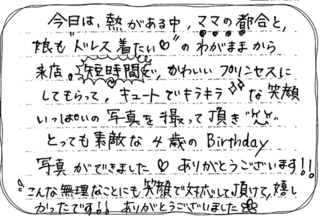 今日は、熱がある中、ママの都合と、
娘も"ドレス着たい♡"のわがままから
来店。短時間で、かわいい プリンセスに
してもらって、キュートでキラキラな笑顔
いっぱいの写真を撮って頂き
とっても素敵な4歳のBirthday
写真ができました♡ ありがとうございます!!
こんな無理なことにも笑顔で対応して頂けて、嬉し
かったです!! ありがとうございました